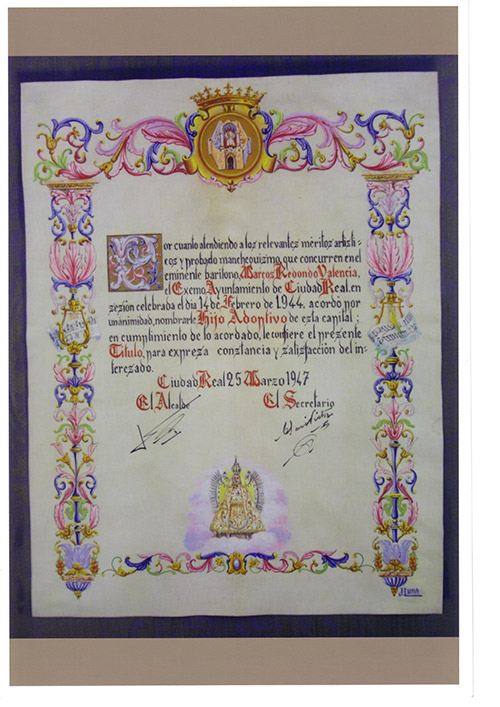 Por cuanto atendiendo a los relevantes méritos artísti-
cos y probado mancheguismo que concurren en el
eminente barítono, Marcos Redondo Valencia,
el Excmo Ayuntamiento de Ciudad Real, en
sesión celebrada el dia 14 de Febrero de 1944. acordó por
unanimidad, nombrarle Hijo Adoptivo de esta capital;
en cumplimiento de lo acordado, le confiere el presente
Titulo, para expresa constancia y satisfacción del in-
teresado.
Ciudad Real 25 Marzo 1947
El Alcalde El Secretario
J. Luna